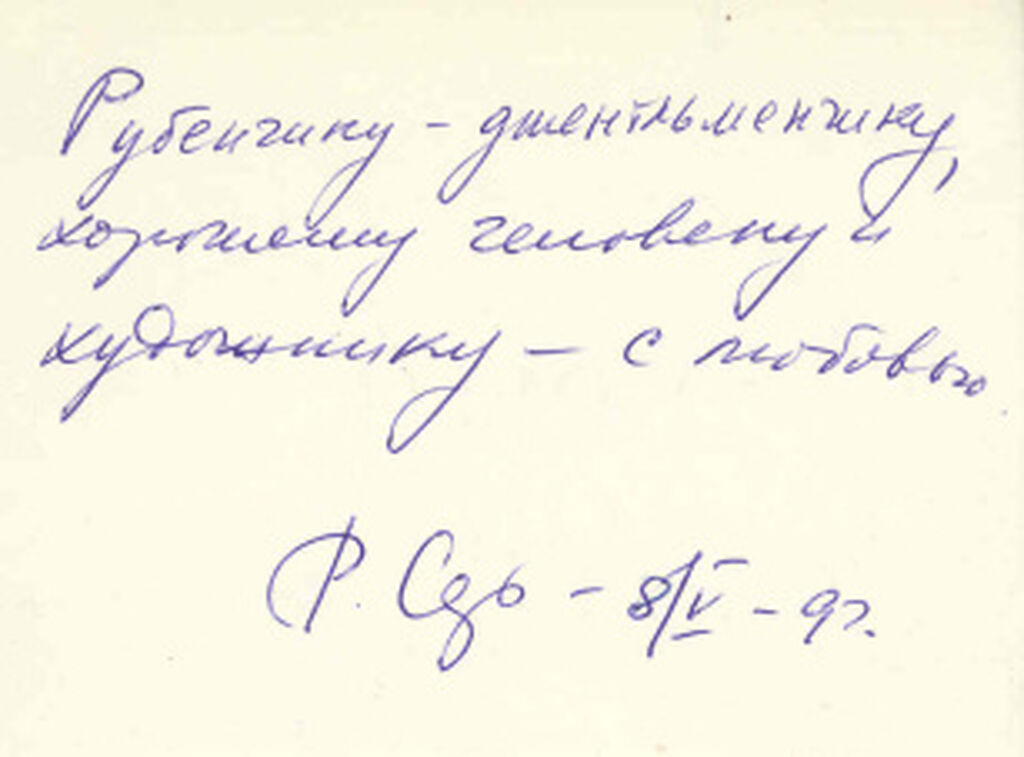 Рубенчику - джентльменчику,
хорошему человеку и
художнику - с любовью.
Р. - 8/V - 9